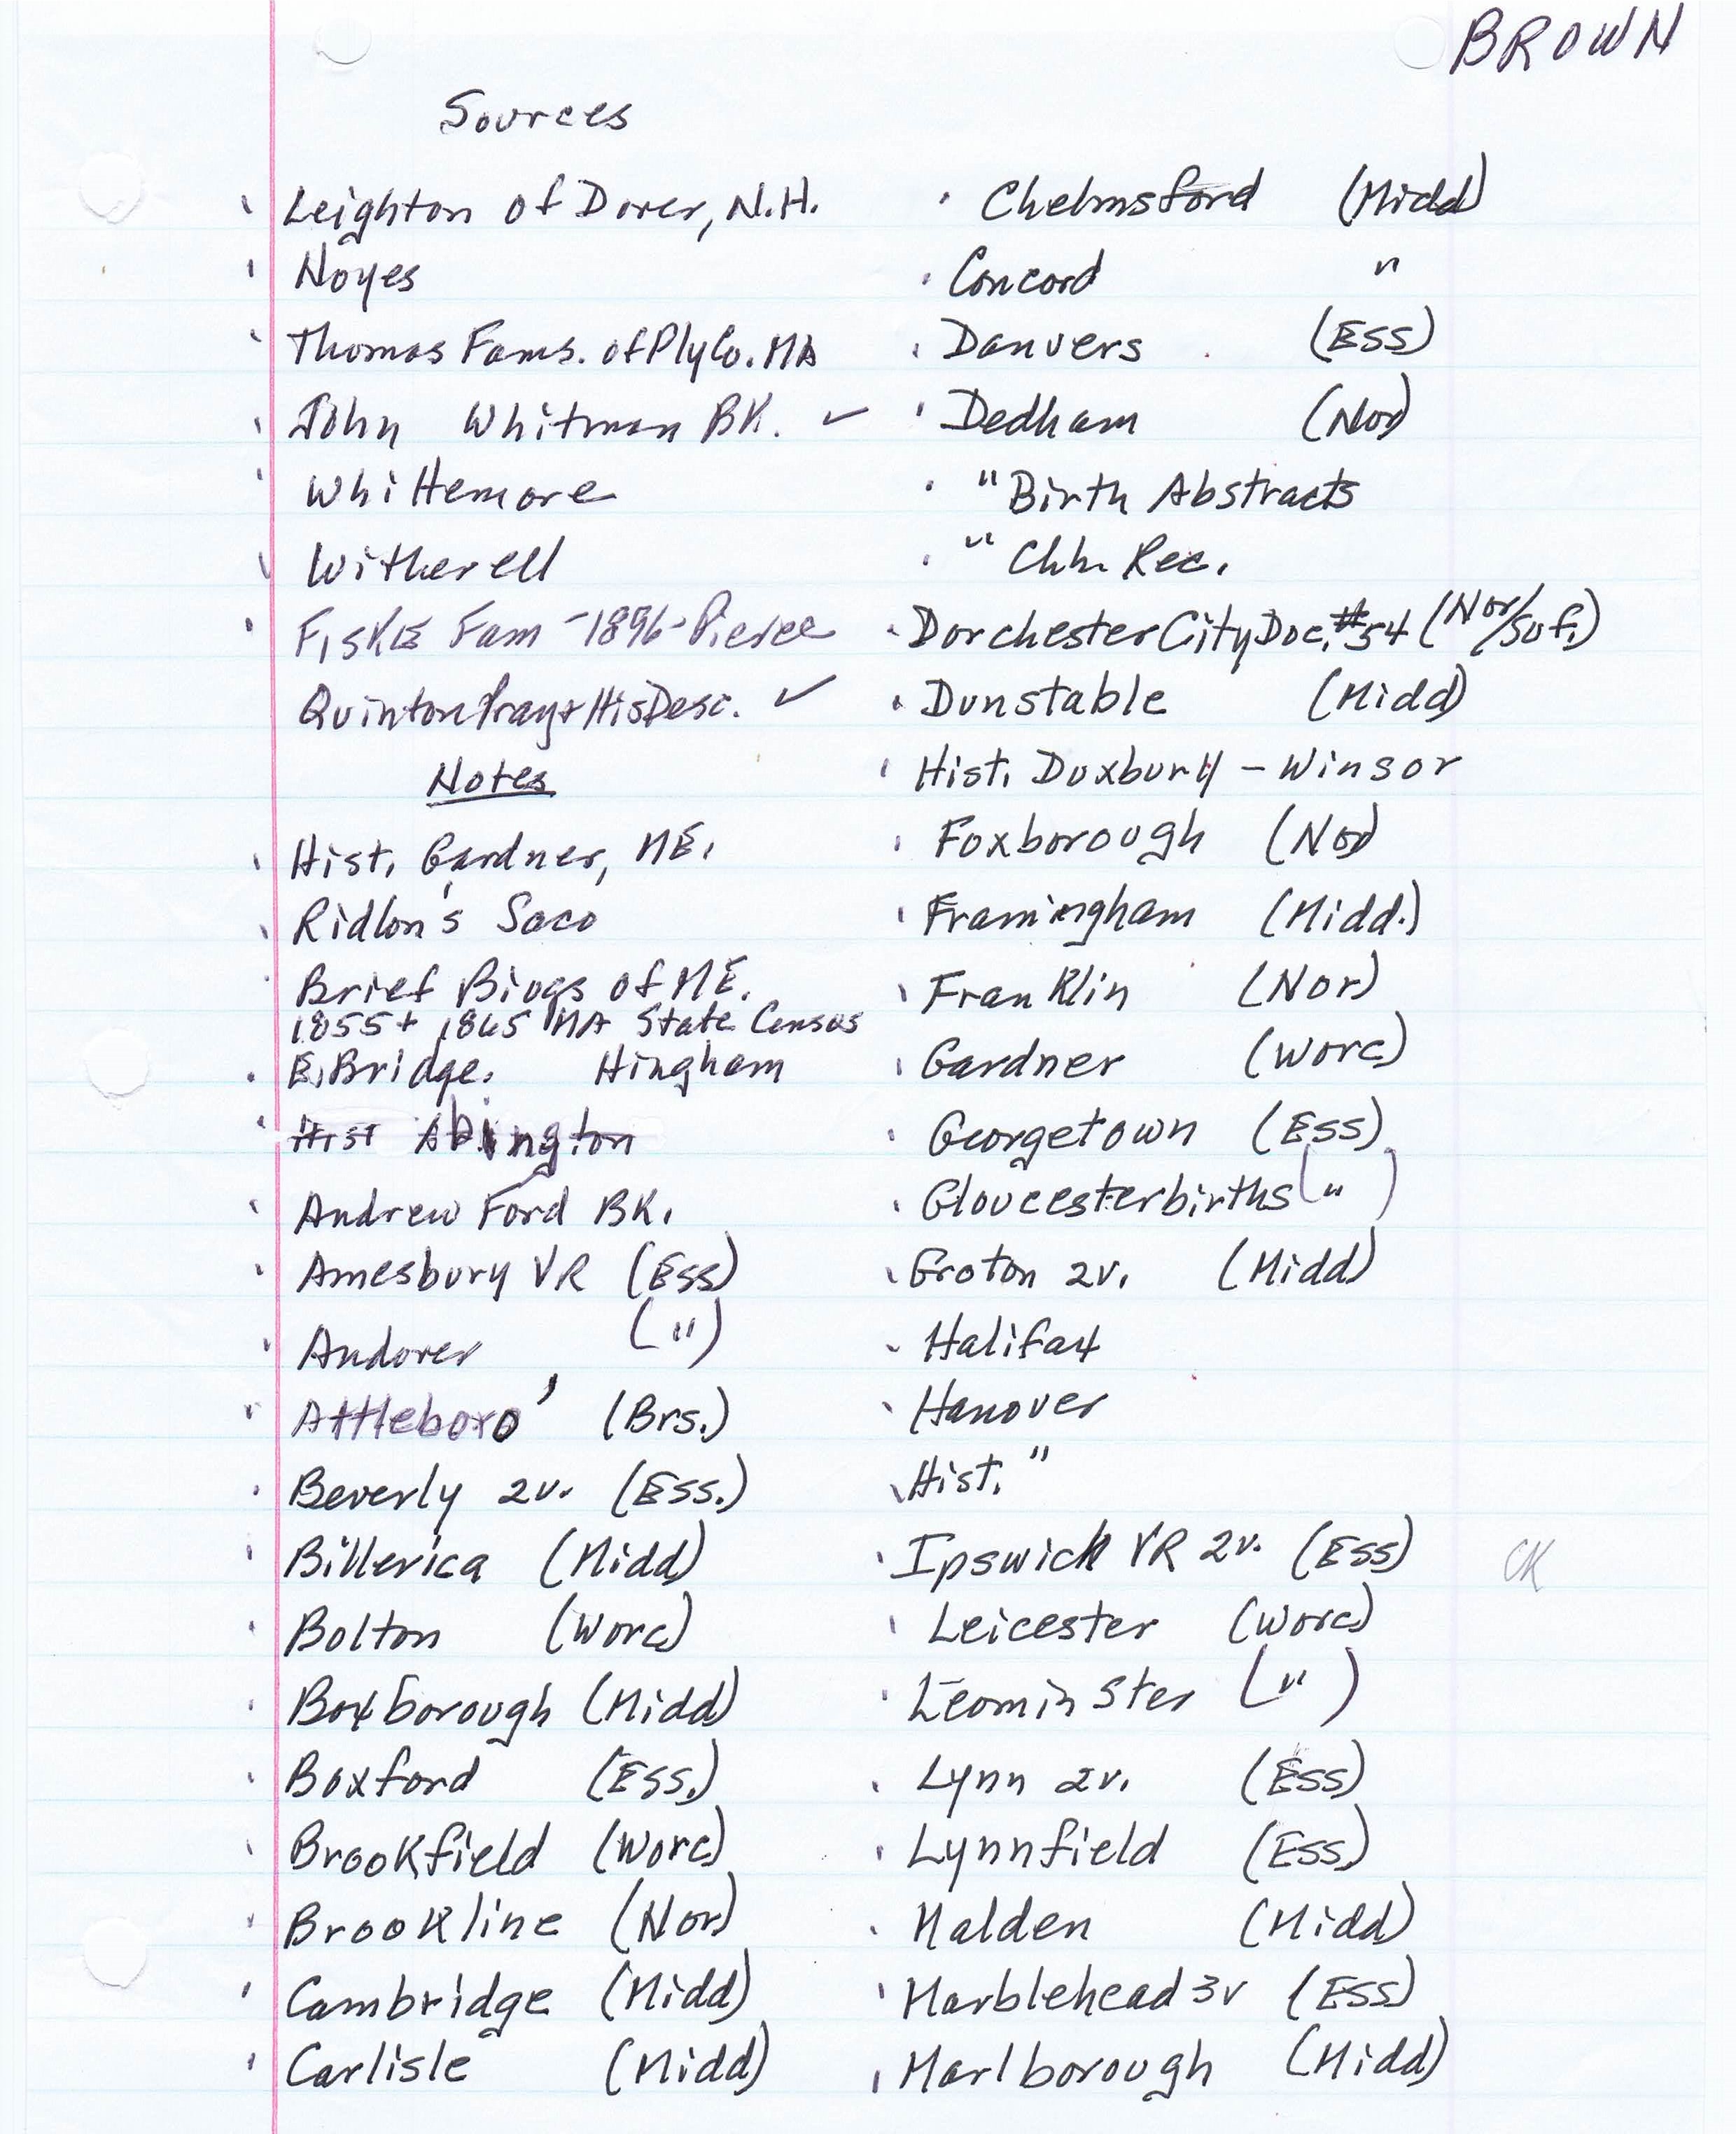 BROWN
Sources
Leighton of Dover, N.H.
Noyes
Thomas Fams. of Ply Co. MA
John Whitman BK. ✓
Whittemore
Witherell
Fiske Fam - 1896 - Pierce
Quinton Pray & His Desc. ✓
Notes
Hist. Gardner, ME.
Ridlon's Saco
Brief Biogs of ME.
1855 + 1865 MA State Census
E. Bridge. Hingham
Hist Abington
Andrew Ford BK.
Amesbury VR (Ess)
Andover (")
Attleboro' (Brs.)
Beverly 2v. (Ess.)
Billerica (Midd)
Bolton (Worc)
Boxborough (Midd)
Boxford (Ess.)
Brookfield (Worc)
Brookline (Nor)
Cambridge (Midd)
Carlisle (Midd)
Chelmsford (Midd)
Concord "
Danvers (Ess)
Dedham (Nor)
" Birth Abstracts
" Chh. Rec.
Dorchester City Doc. #54 (Nor/Suf.)
Dunstable (Midd)
Hist. Duxbury - Winsor
Foxborough (Nor)
Framingham (Midd.)
Franklin (Nor)
Gardner (Worc)
Georgetown (Ess)
Gloucester births (")
Groton 2v. (Midd)
Halifax
Hanover
Hist. "
Ipswich VR 2v. (Ess) CK
Leicester (Worc)
Leominster (")
Lynn 2v. (Ess)
Lynnfield (Ess.)
Malden (Midd)
Marblehead 3v (Ess)
Marlborough (Midd)